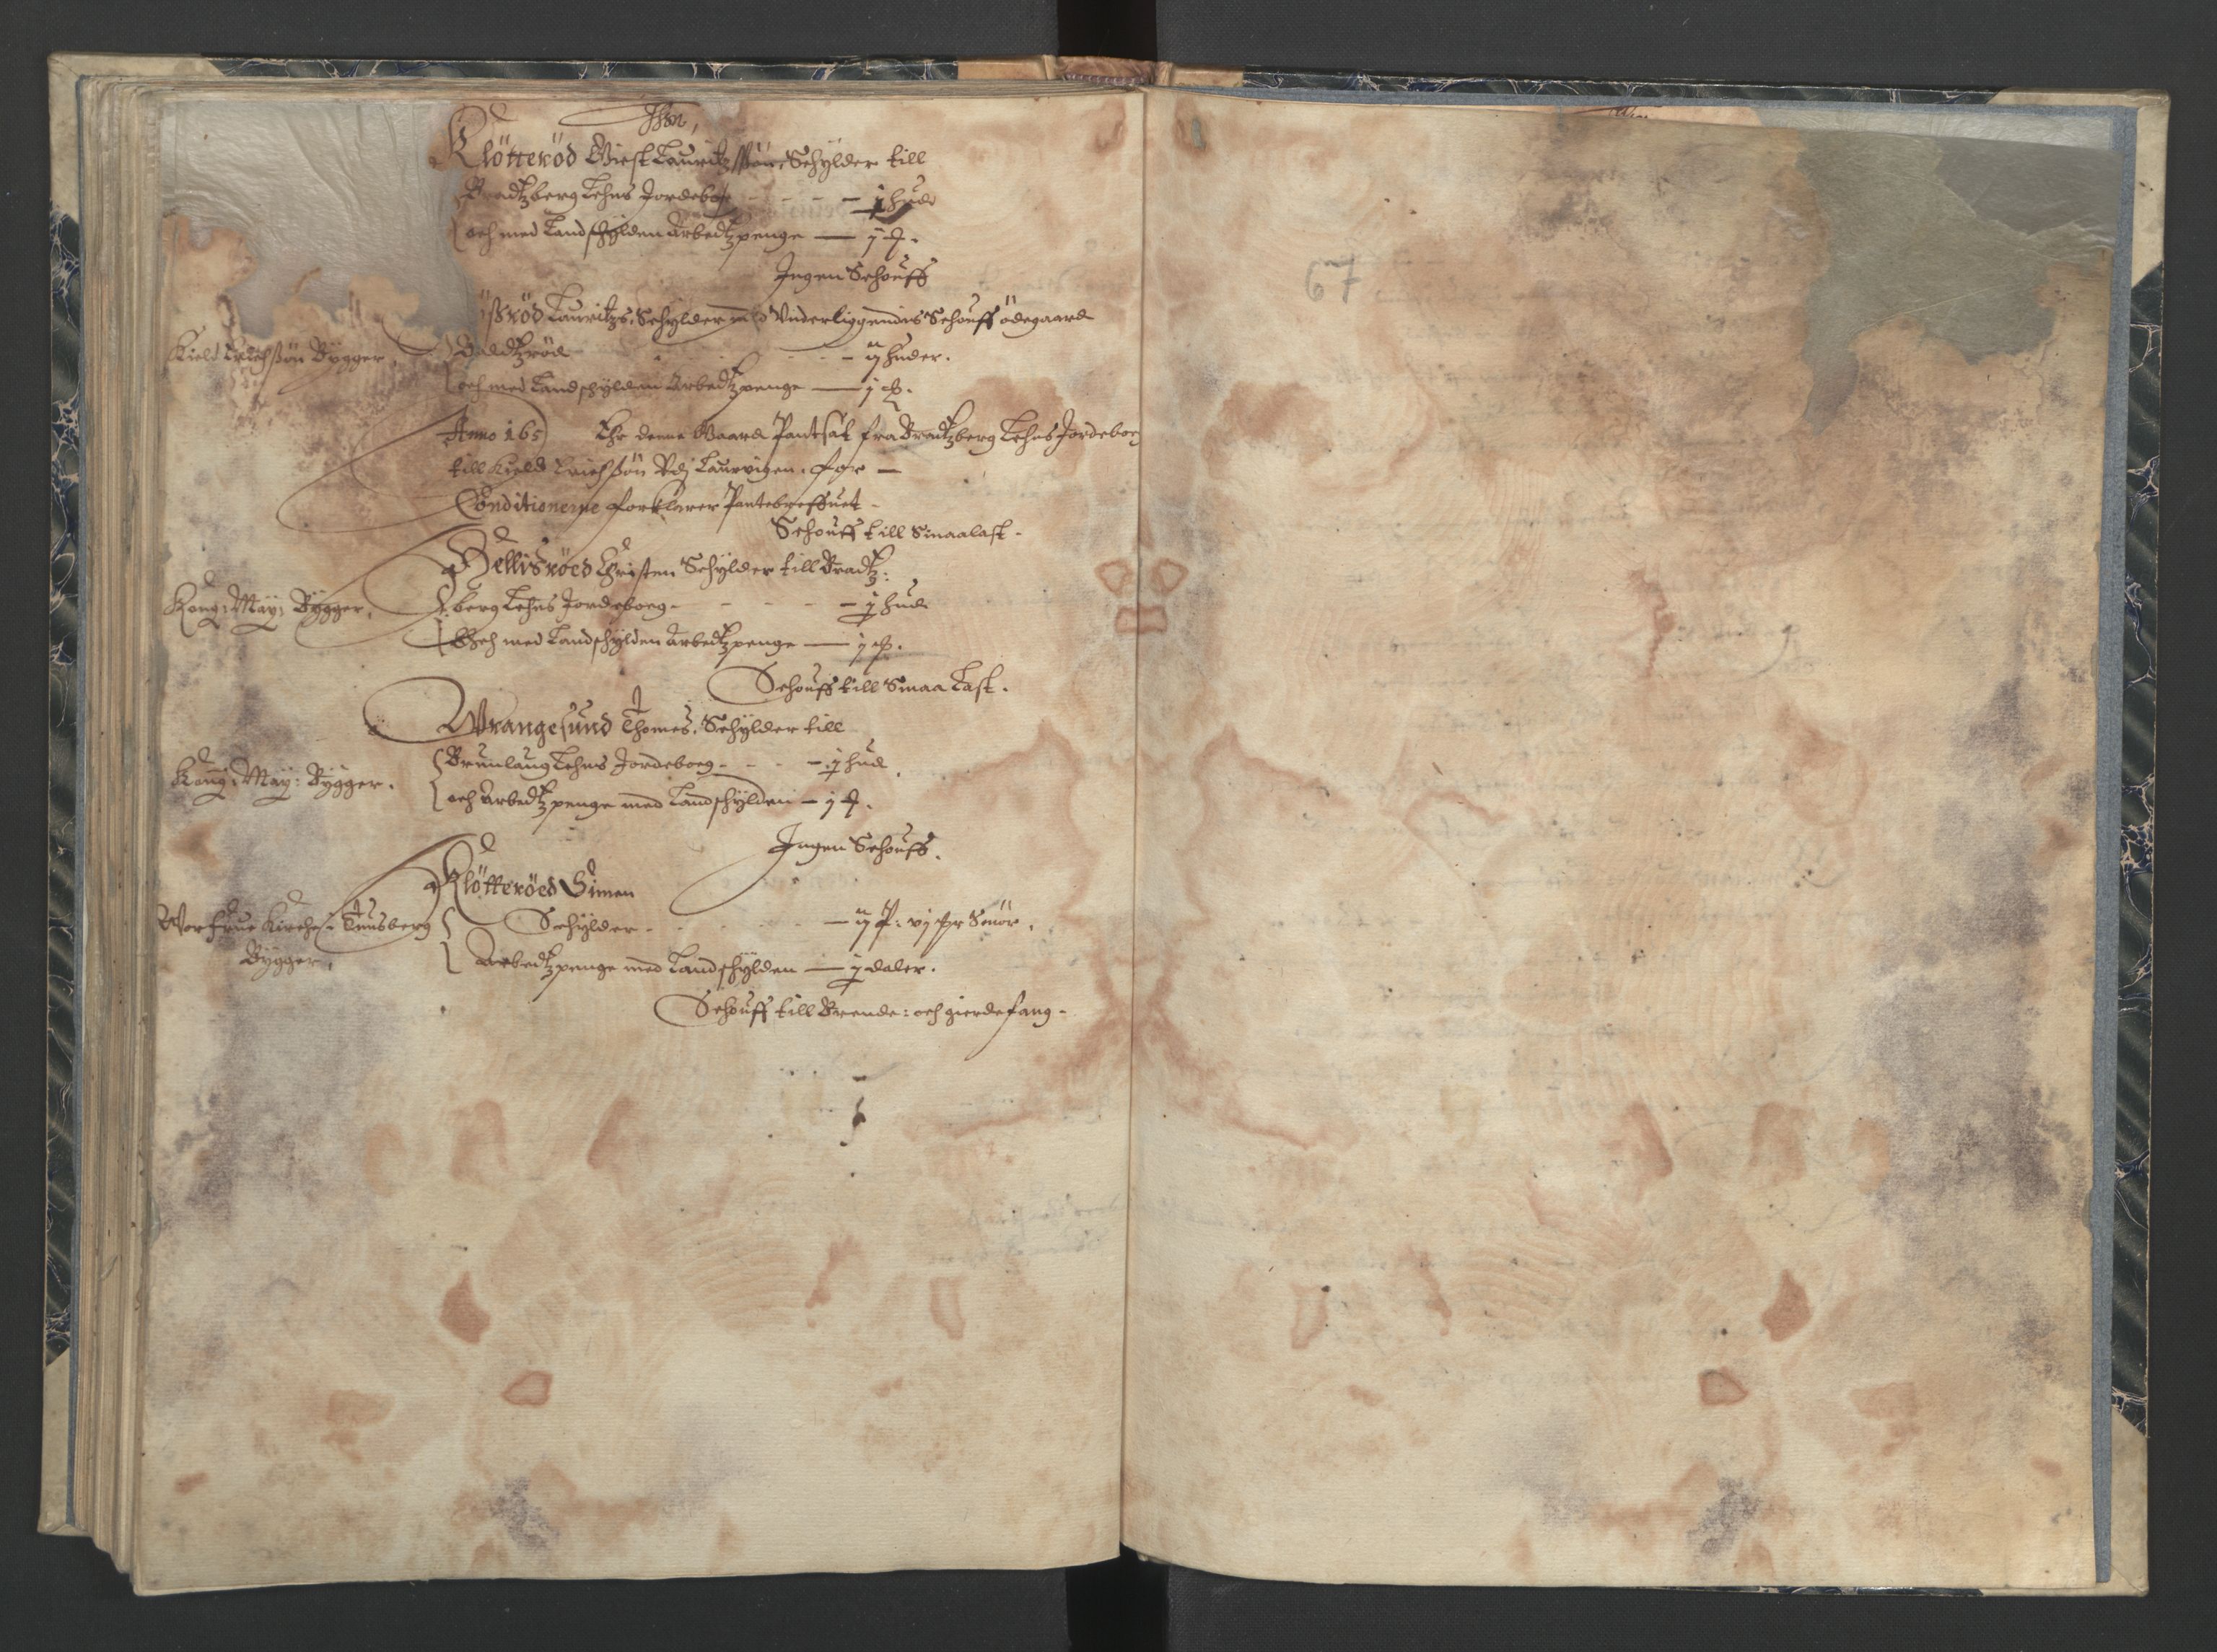 Klötteröd Giest Lauritzsön Schylder till
Bradtzberg Lehns Jordebog - - - - j hud
och med Landschylden Arbedtzpenge — j
Ingen Schouff
Lauritzs. Schylder Underliggendis Schouff ödegaard
Kield Erichsön Bygger.
- - - ij huder.
och med Landschylden Arbedtzpenge — j
Anno 165 Ehr denne Gaard Pantsat fra Bradtzberg Lehns Jordebog
till Kield Erichsön Udj Laurvigen. for —
Conditionerne forklarer Pantebreffuet -
Schouff till Smaalast -
Hellisröed Christen Schylder till Bradtz:
Kong: May: Bygger.
berg Lehns Jordeboeg - - - - - j hud
Och med Landschylden Arbedtzpenge — j
Schouff till Smaa Last.
Wrangesund Thomes. Schylder till
Kong: May: Bygger.
Brunlaug Lehns Jordeboeg - - - - j hud
och Arbedtzpenge med Landschylden — j
Ingen Schouff.
Klötteröed Simen
Worfrue Kirche i Tunsberg
Schylder - - - - - ij vj Smör.
Bygger.
Arbedtzpenge med Landschylden — j daler.
Schouff till Brende: och gierdefang -
67